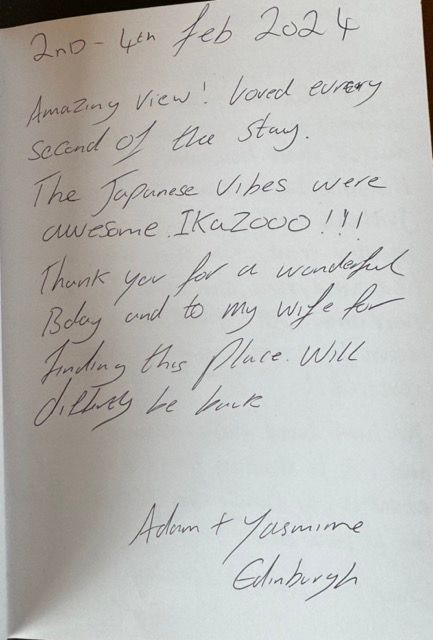 2nD - 4th Feb 2024
Amazing view! Loved every
second of the stay.
The Japanese vibes were
awesome. IKaZOOO!!!
Thank you for a wonderful
Bday and to my wife for
finding this place. Will
be back
Adam + Yasmine
Edinburgh